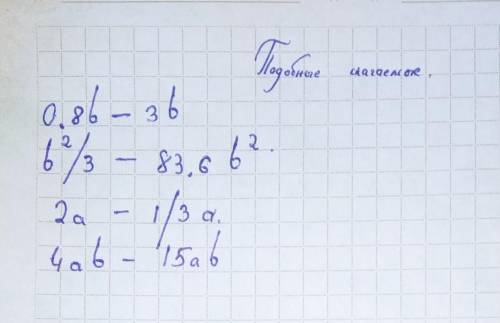 Подобные слагаемые.
0.8b – 3b
b²/3 – 83.6 b².
2a – 1/3 a.
4ab – 15ab